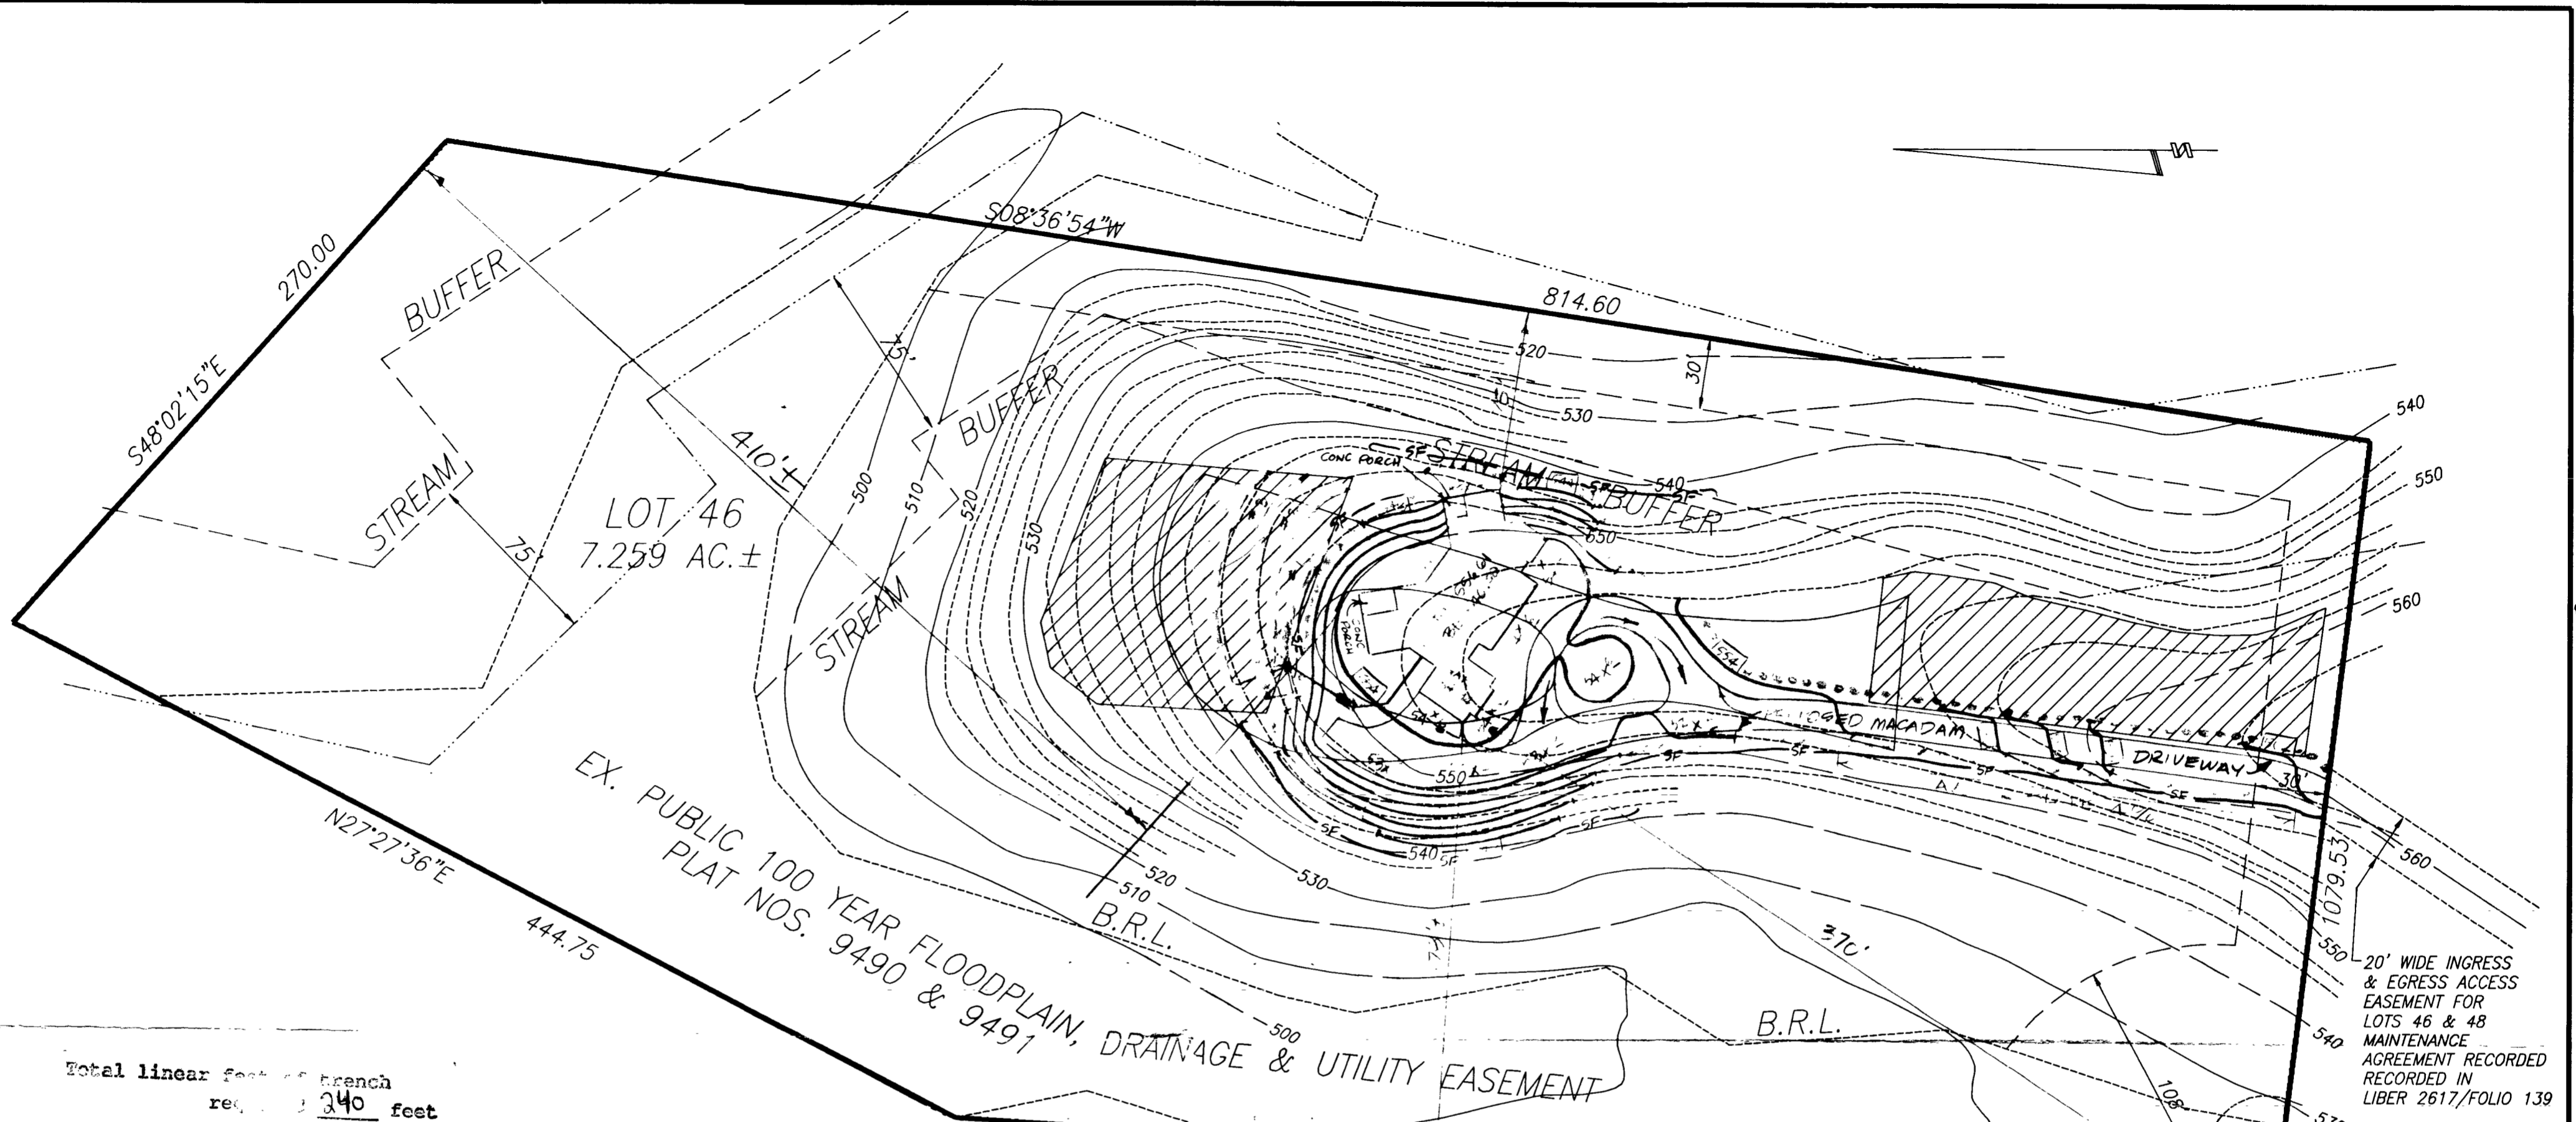 S08°36'54"W
814.60
270.00
S48°02'15"E
BUFFER
STREAM
75'
LOT 46
7.259 AC.±
410'±
75'
BUFFER
STREAM
500
510
520
530
520
530
30'
10
CONC PORCH
SF
STREAM
BUFFER
540
SF
SF
550
540
550
560
CONC
PORCH
554
MACADAM
DRIVEWAY
30'
SF
SF
SF
SF
SF
550
540
SF
530
520
510
B.R.L.
500
370'
B.R.L.
108
1079.53
560
550
540
N27°27'36"E
444.75
EX. PUBLIC 100 YEAR FLOODPLAIN, DRAINAGE & UTILITY EASEMENT
PLAT NOS. 9490 & 9491
20' WIDE INGRESS
& EGRESS ACCESS
EASEMENT FOR
LOTS 46 & 48
MAINTENANCE
AGREEMENT RECORDED
RECORDED IN
LIBER 2617/FOLIO 139
N
Total linear feet of trench
240 feet